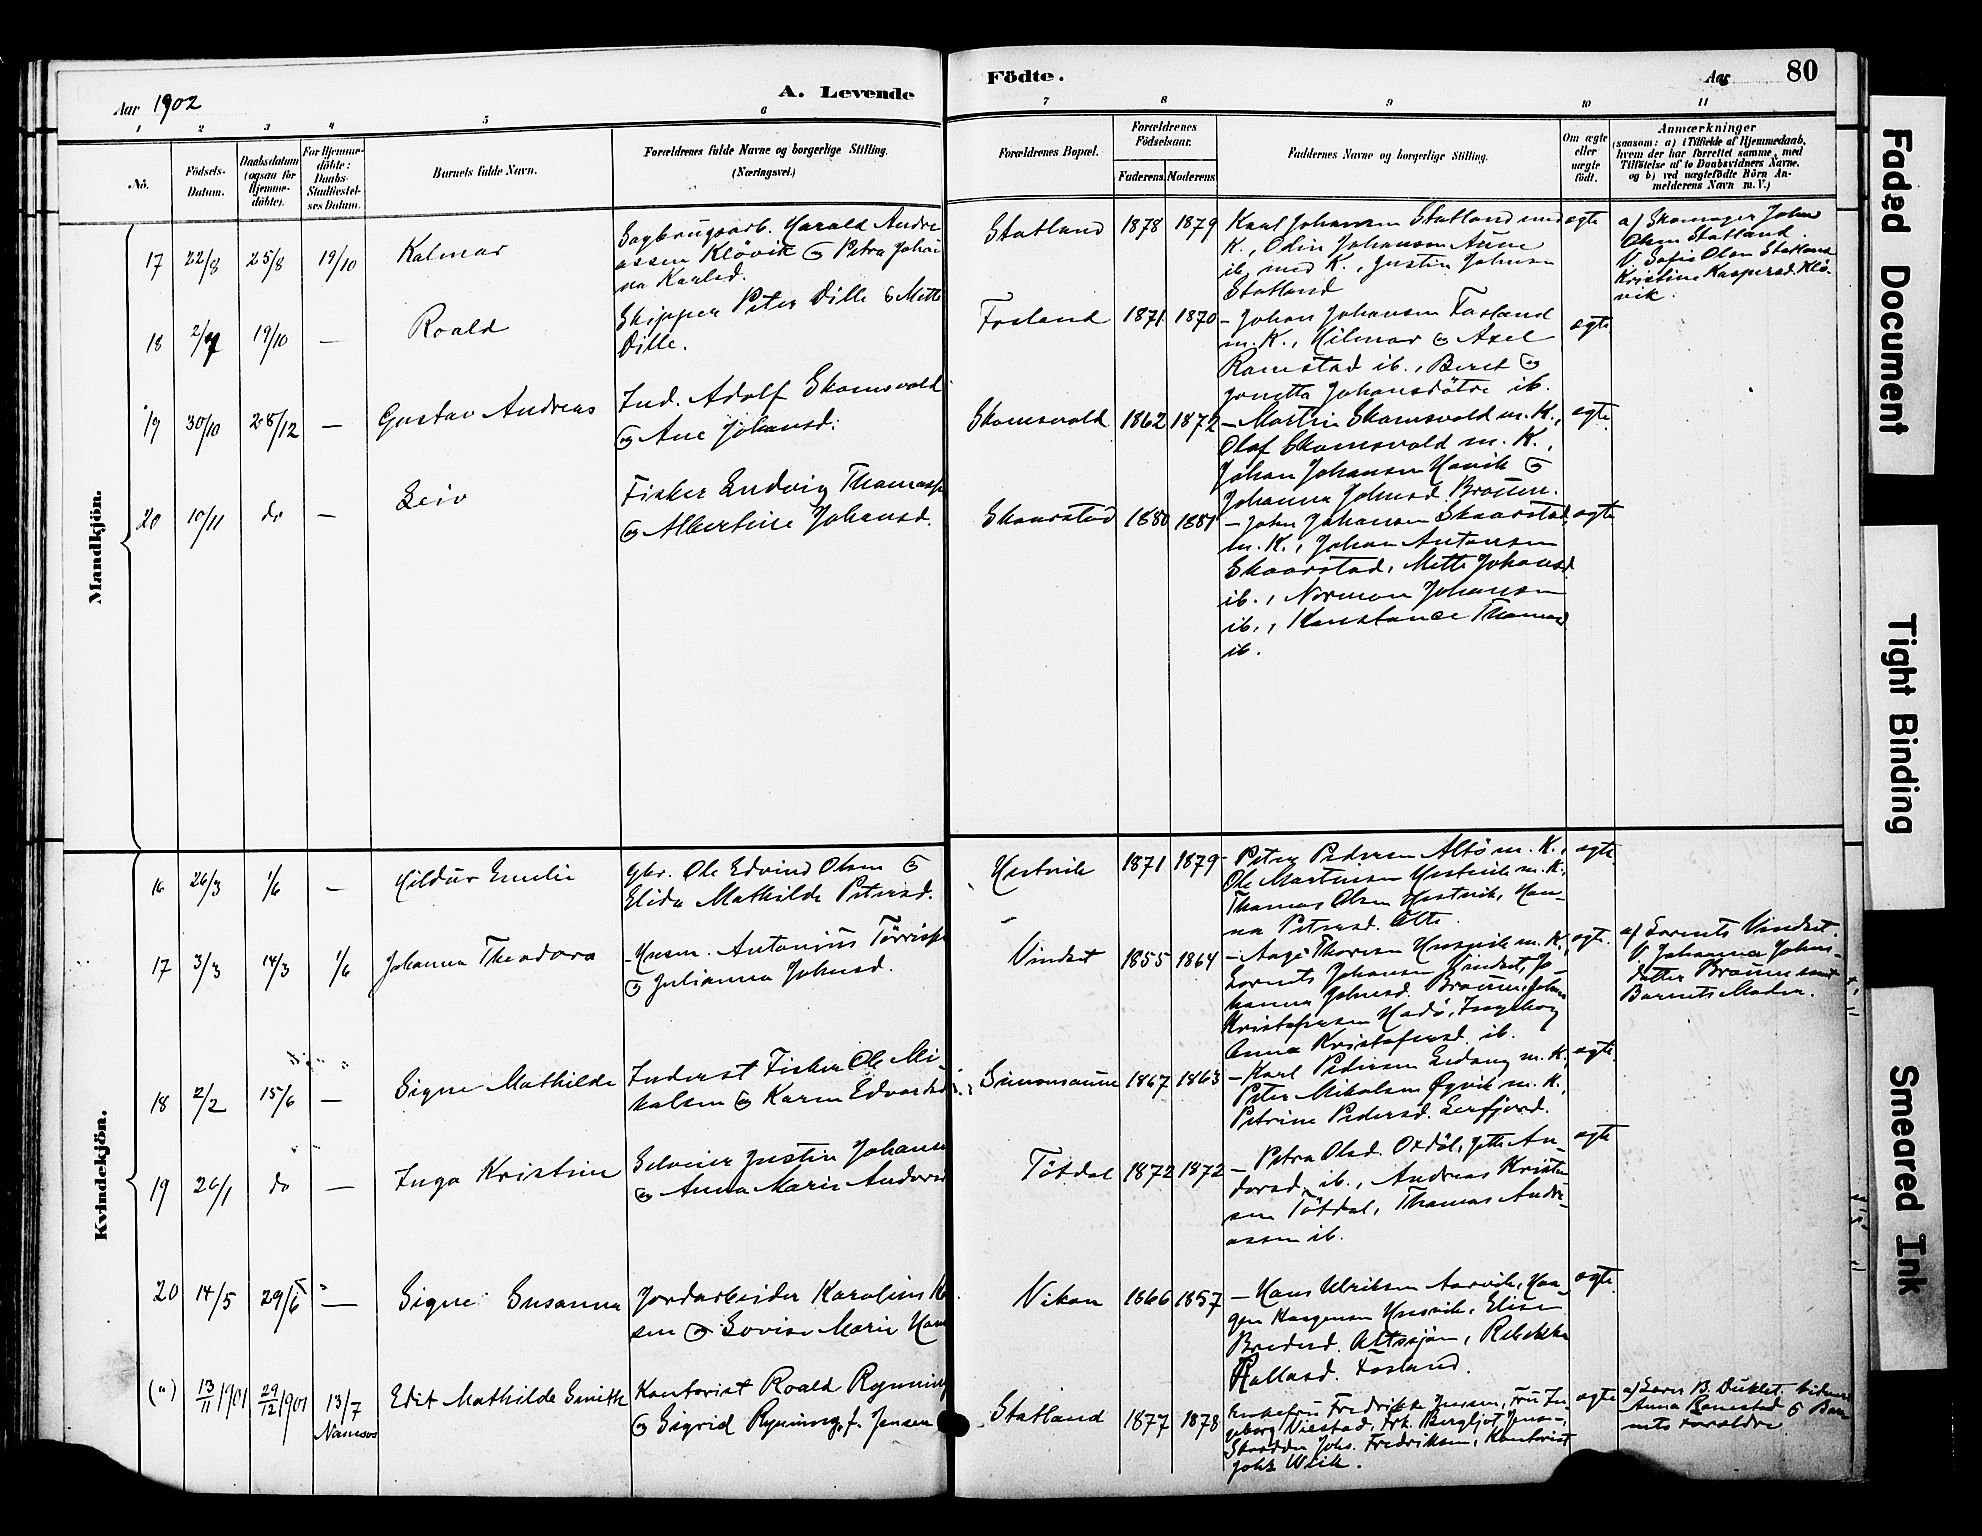 Aar 1902
A. Levende
Födte.
Aar
80
1 2 3 4 5 6 7 8 9 10 11
No.
Födsels-
Datum.
Daabsdatum
(ogsaa for
Hjemme-
döbte).
For Hjemme-
döbte:
Daabs-
Stadfæstel-
ses Datum.
Barnets fulde Navn.
Forældrenes fulde Navne og borgerlige Stilling.
(Næringsvei.)
Forældrenes Bopæl.
Forældrenes
Födselsaar.
Faderens. Moderens.
Faddernes Navne og borgerlige Stilling.
Om ægte
eller
uægte
födt.
Anmærkninger
(saasom: a) i Tilfælde af Hjemmedaab,
hvem der har forrettet samme, med
Tilföielse af to Daabsvidners Navne.
og b) ved uægtefödte Börn An-
melderens Navn m. V.)
Mandkjön.
17 22/8 25/8 19/10 Kalmar
Sagbrugsarb. Harald Andre
assen Klövik og Petra Johan
na Karlsd.
Statland 1878 1879
Karl Johansen Statland med
K., Odin Johansen Aune
ib. med K., Justin Johnsen
Statland
ægte
a) Skomager Johan
Olsen Statland
V. Sofie Olsen Statland
Kristine Kaspersd. Klö-
vik.
18 19/10 — Roald
Skipper Peter Dille og Mette
Dille.
Fosland 1871 1870
— Johan Johansen Fosland
m. K., Hilmar og Axel
Ramstad ib., Beret og
Jonetta Johansdötre ib.
ægte
19 30/10 28/12 — Gustav Andreas
Ind. Adolf Skomsvold
og Ane Johansd.
Skomsvold 1862 1872
— Martin Skomsvold m. K.,
Olaf Skomsvold m. K.,
Johan Johansen Havik og
Johanna Johnsd. Braaten.
ægte
20 10/11 do — Leiv
Fisker Ludvig Thomass
og Albertine Johansd.
Skaarstad 1880 1881
— John Johansen Skaarstad
m. K., Johan Antonsen
Skaarstad, Mette Johansd.
ib., Norman Johansen
ib., Konstance Thomasd
ib.
ægte
Kvindekjön.
16 26/3 1/6 — Hildur Emelie
Gbr. Ole Edvind Olsen og
Elida Mathilde Petersd.
Hestvik 1871 1879
— Peter Pedersen Altö m. K.,
Ole Martinsen Hestvik m. K.
Thomas Olsen Hestvik, Han-
na Petersd. Altö.
ægte
17 3/3 14/3 1/6 Johanna Theodora
Husm. Antonius Törriss
og Julianna Johnsd.
Vindset 1855 1864
— Aage Thorsen Husvik m. K.,
Lorents Johansen Vindset, Jo-
hanna Johnsd. Braaten, Johan
Kristofersen Hadö, Ingeborg
Anna Kristofersd. ib.
ægte.
a) Lorents Vindset.
V. Johanna Johns-
datter Braaten samt
Barnets Moder.
18 2/2 15/6 — Signe Mathilde
Inderst Fisker Ole Mi-
kalsen og Karen Edvardsd.
Simonsaune 1867 1863
— Karl Pedersen Ledang m. K.
Peter Mikalsen Öyvik m. K.,
Petrine Pedersd. Lerfjord.
ægte
19 26/1 do — Inga Kristine
Selveier Justin Johanse
og Anna Marie Andersd
Tötdal 1872 1872
— Petra Olsd. Oxdöl, Jette An-
dersd. ib., Andreas Kristen
sen Tötdal, Thomas Andre-
assen ib.
ægte
20 14/5 29/6 — Signe Susanna
Jordarbeider Karolius
sen og Lovise Marie Han
Vikan 1866 1857
— Hans Ulriksen Aarvik, Haa-
gen Haagensen Husvik, Elisa
Bredesd. Altssjön, Rebekka
Rallasd. Fosland.
ægte.
(") 13/11 1901 29/12 1901 13/7
Namsos
Edit Mathilde Smith
Kontorist Roald Rynning
og Sigrid Rynning, f. Jensen
Statland 1877 1878
Enkefru Fredrikke Jensen, Fru In-
geborg Vilstad, Frk. Bergljot Jensen,
Skrædder Johs. Fredriksen, Kontorist
Johs Wiik.
ægte
a) Lars B. Duklet. Vidner
Anna Ramstad og Bar-
nets Forældre.
Faded Document
Tight Binding
Smeared Ink